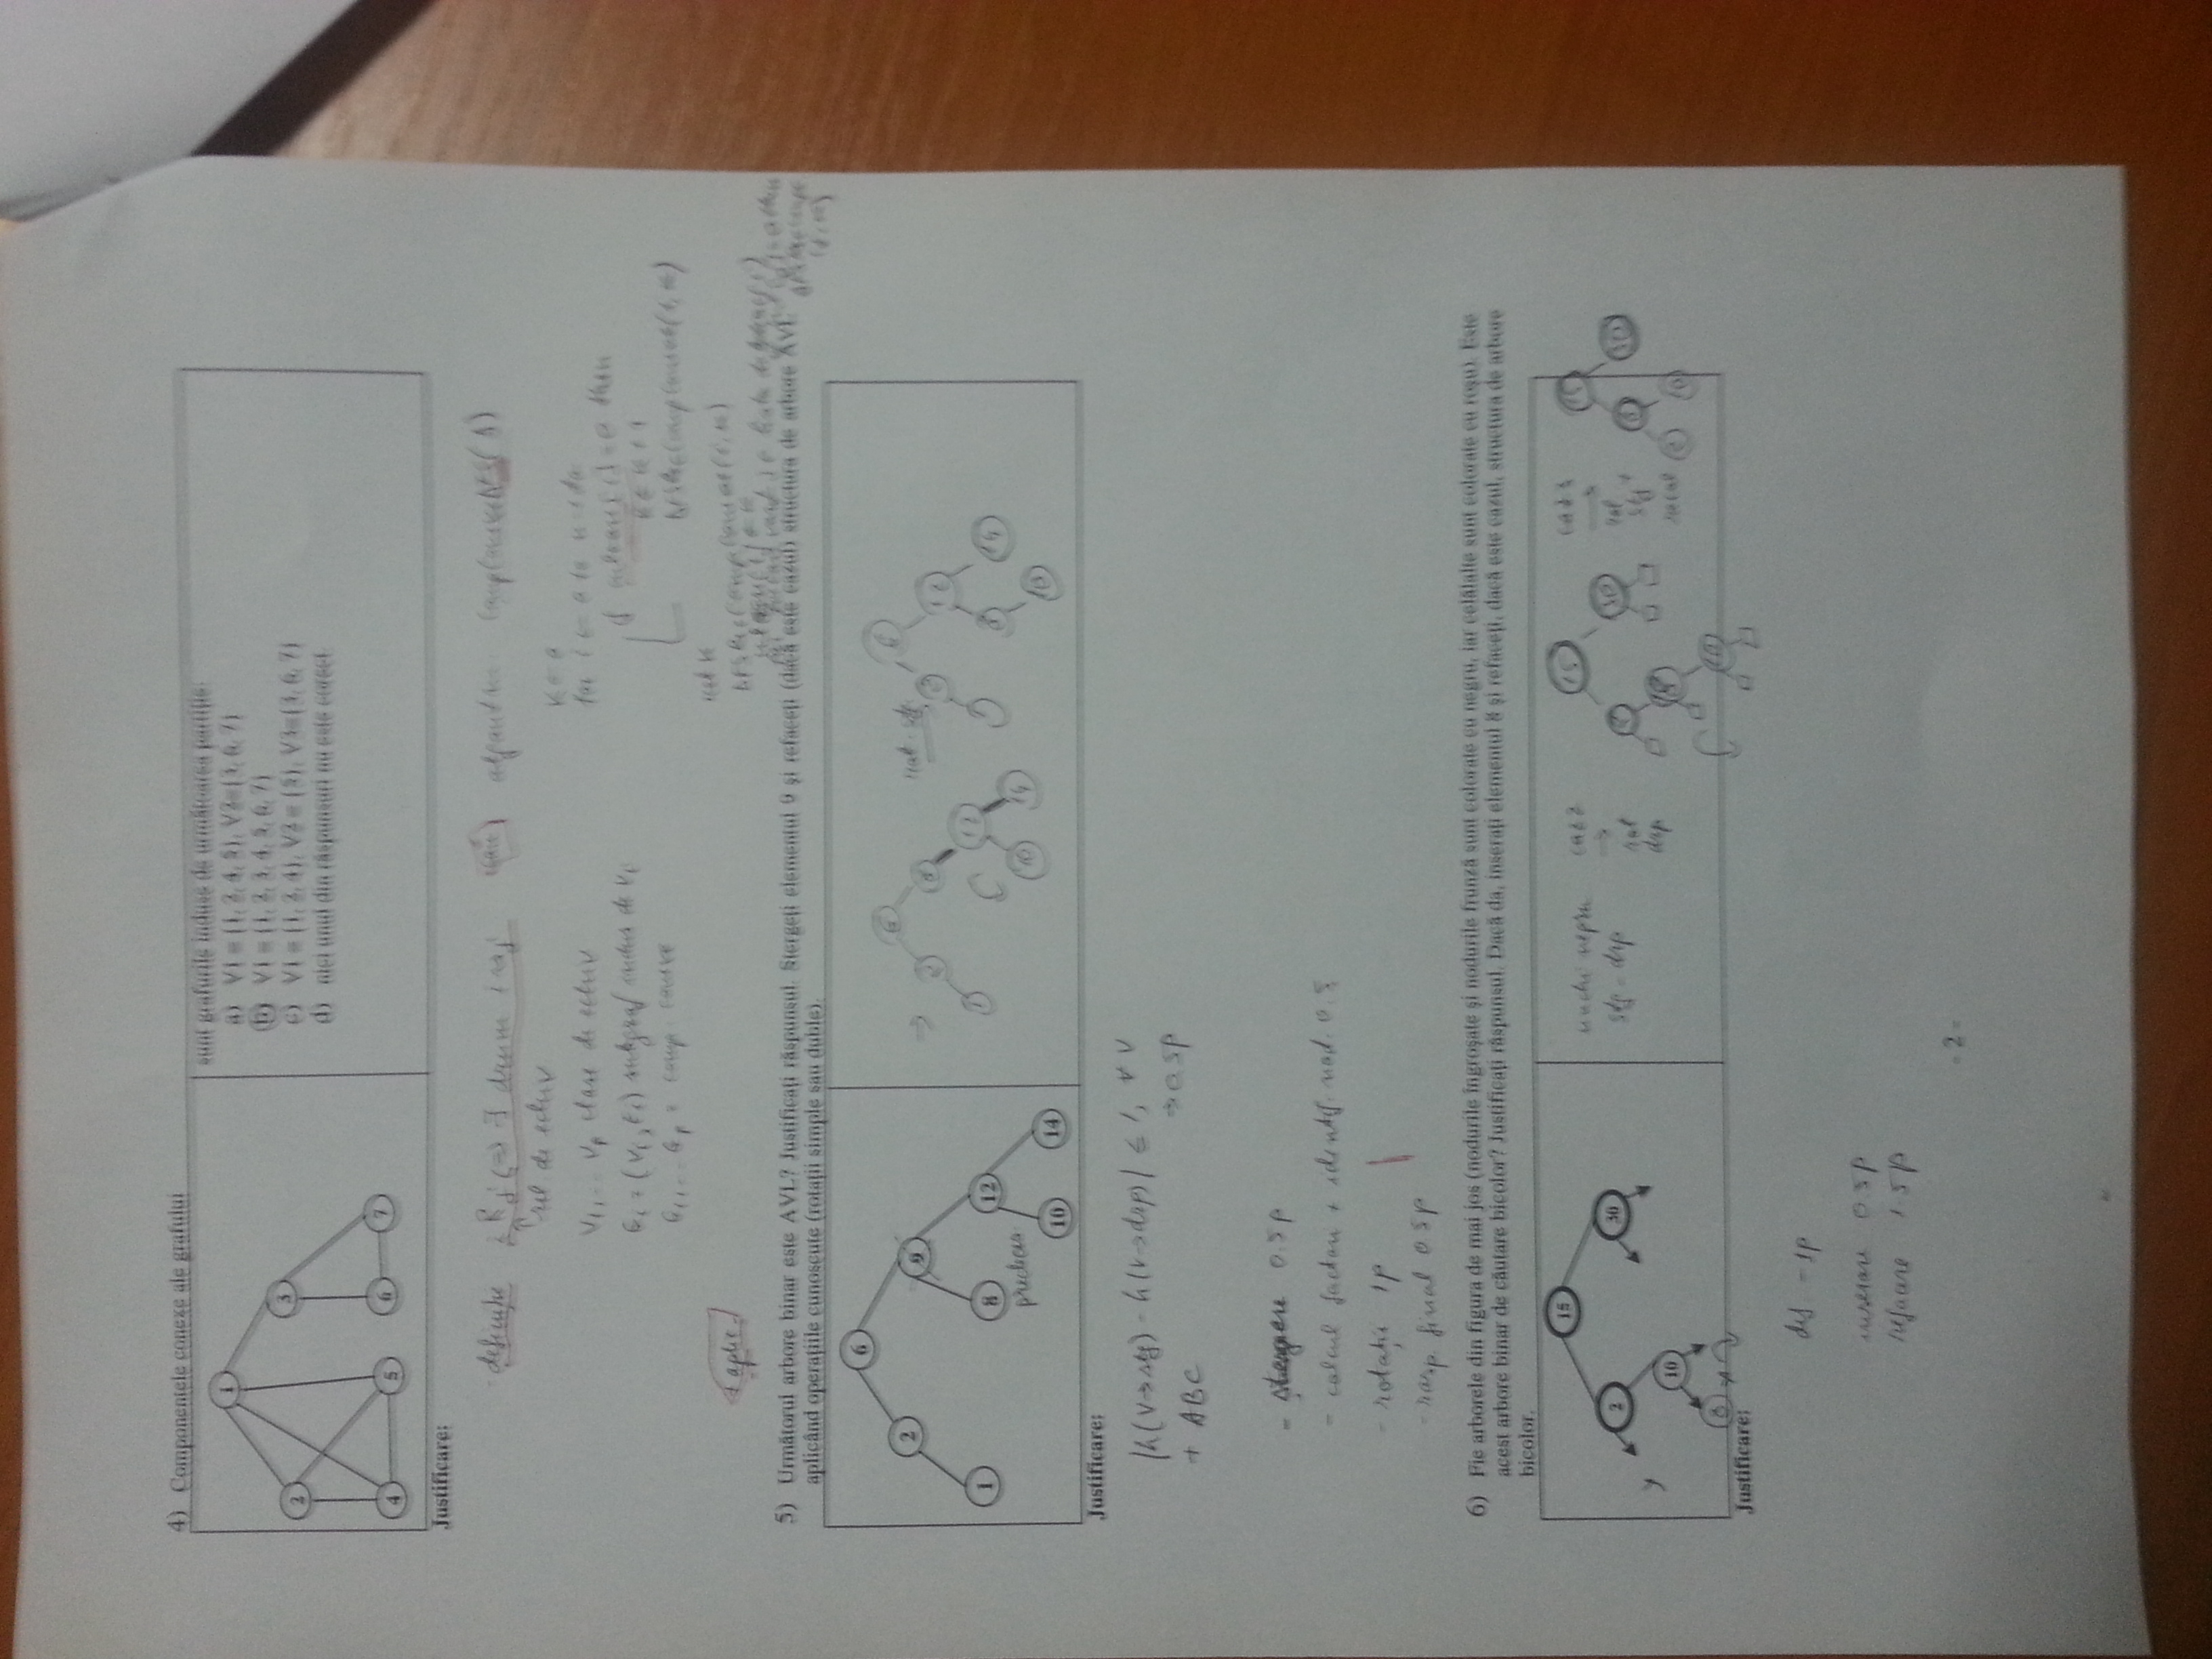 4) Componentele conexe ale grafului
1
2
3
4
5
6
7
sunt grafurile induse de următoarea partiție:
a) V1 = {1, 2, 4, 5}, V2={3, 6, 7}
b) V1 = {1, 2, 3, 4, 5, 6, 7}
c) V1 = {1, 2, 4}, V2 = {5}, V3={3, 6, 7}
d) nici unul din răspunsuri nu este corect.
Justificare:
definiție i R j (=) ∃ drum i j sau algoritm
rel de echiv
V1,... Vp clase de echiv
Gi = (Vi, Ei) subgraf indus de Vi
G1,... Gp = comp. conexe
k ← 0
for i ← 0 to n-1 do
if [i] = 0 then
k ← k+1
ret k
+ aplic.
5) Următorul arbore binar este AVL? Justificați răspunsul. Ștergeți elementul 9 și refaceți (dacă este cazul) structura de arbore AVL
aplicând operațiile cunoscute (rotații simple sau duble).
6
2
9
1
8
12
predeces.
10
14
⇒
6
2
8
1
12
10
14
rot. stg.
6
2
12
1
8
14
10
Justificare:
|h(v→stg) - h(v→drp)| ≤ 1, ∀ v
→ 0.5p
+ ABC
- ștergere 0.5p
- calcul factori + identif. nod. 0.5
- rotație 1p
- rasp. final 0.5p
6) Fie arborele din figura de mai jos (nodurile îngroșate și nodurile frunză sunt colorate cu negru, iar celălalte sunt colorate cu roșu). Este
acest arbore binar de căutare bicolor? Justificați răspunsul. Dacă da, inserați elementul 8 și refaceți, dacă este cazul, structura de arbore
bicolor.
15
2
30
y
10
8
x
unchi negru
stg - drp
caz 2
→
rot
drp
15
2
30
8
10
caz 3
→
rot
stg +
recol
15
8
30
2
10
Justificare:
def. - 1p
inserare 0.5p
refacere 1.5p
- 2 -